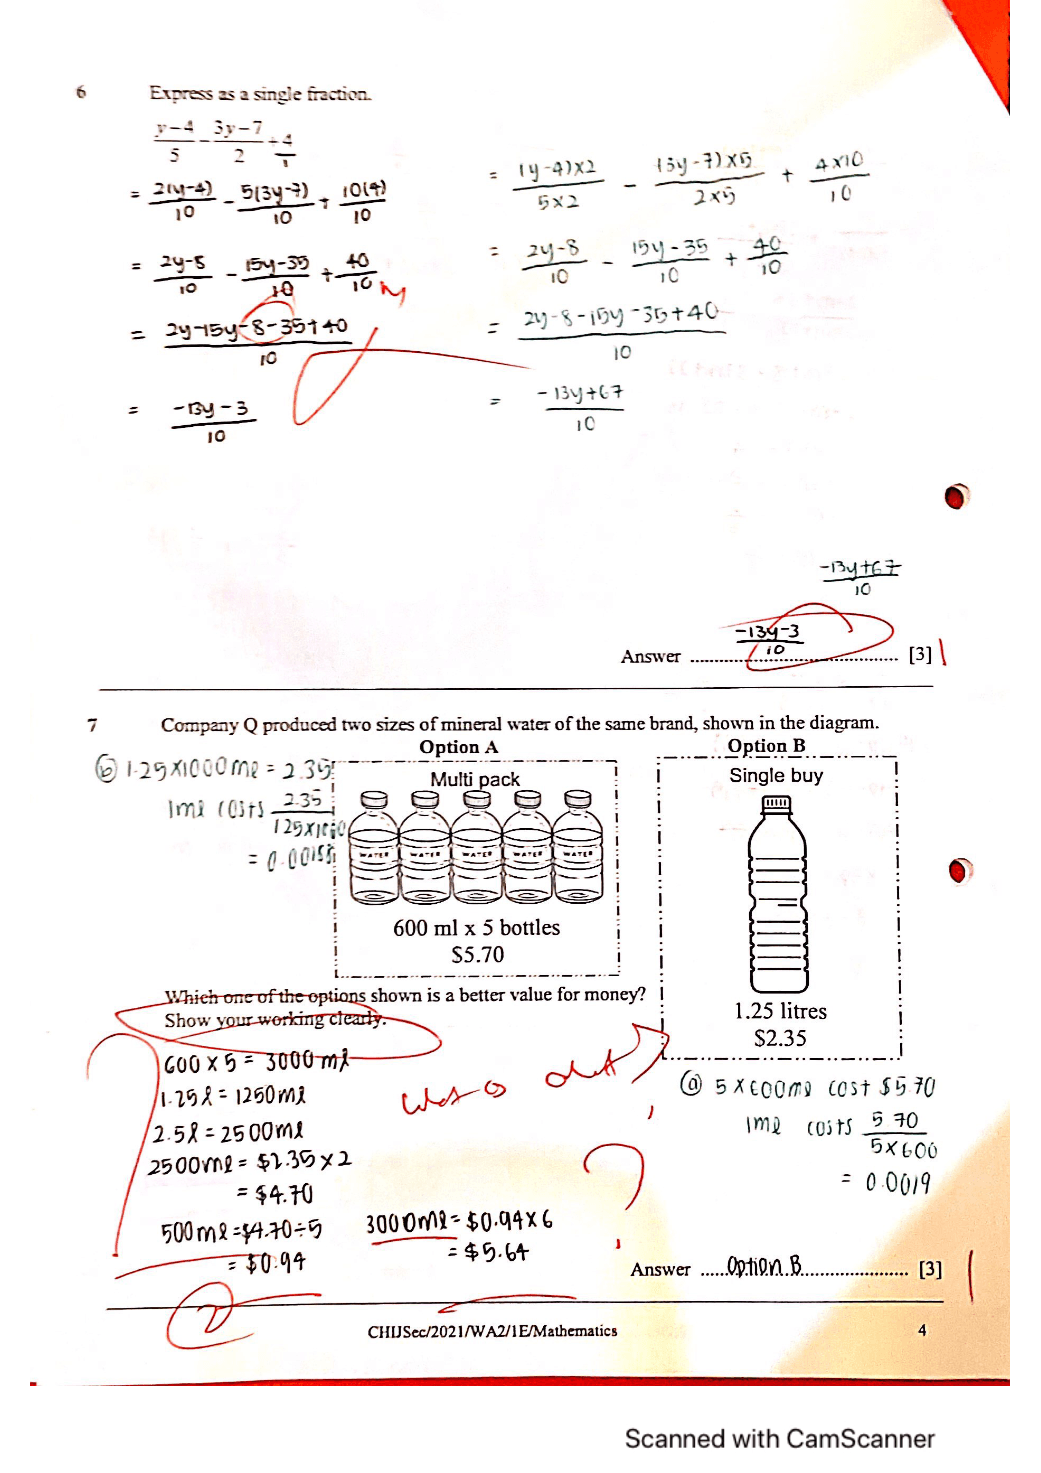 6 Express as a single fraction.
y-4/5 - 3y-7/2 + 4/1
= 2(y-4)/10 - 5(3y-7)/10 + 10(4)/10
= 2y-8/10 - 15y-35/10 + 40/10
= 2y-15y-8-35+40/10
= -13y-3/10
= (y-4)×2/5×2 - (3y-7)×5/2×5 + 4×10/10
= 2y-8/10 - 15y-35/10 + 40/10
= 2y-8-15y-35+40/10
= -13y+67/10
-13y+67/10
-13y-3/10
Answer [3]
7 Company Q produced two sizes of mineral water of the same brand, shown in the diagram.
Option A
Multi pack
WATER WATER WATER WATER WATER
600 ml x 5 bottles
$5.70
Option B
Single buy
1.25 litres
$2.35
(b) 1.25×1000ml = 2.35
1ml costs 2.35/125×1000
= 0.00188
Which one of the options shown is a better value for money?
Show your working clearly.
600 × 5 = 3000 ml
1.25l = 1250ml
2.5l = 2500ml
2500ml = $2.35 × 2
= $4.70
500ml = $4.70÷5
= $0.94
3000ml = $0.94×6
= $5.64
(a) 5×600ml cost $5.70
1ml costs 5.70/5×600
= 0.0019
Answer Option B [3]
CHIJSec/2021/WA2/1E/Mathematics 4
Scanned with CamScanner